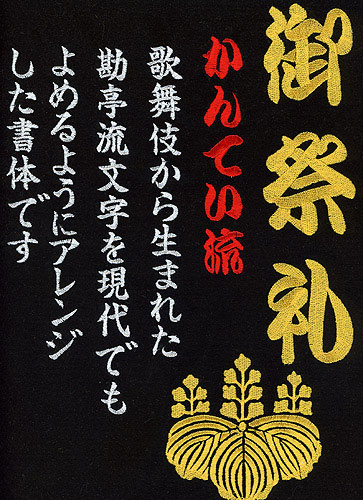 御祭礼
かんてい流
歌舞伎から生まれた
勘亭流文字を現代でも
よめるようにアレンジ
した書体です